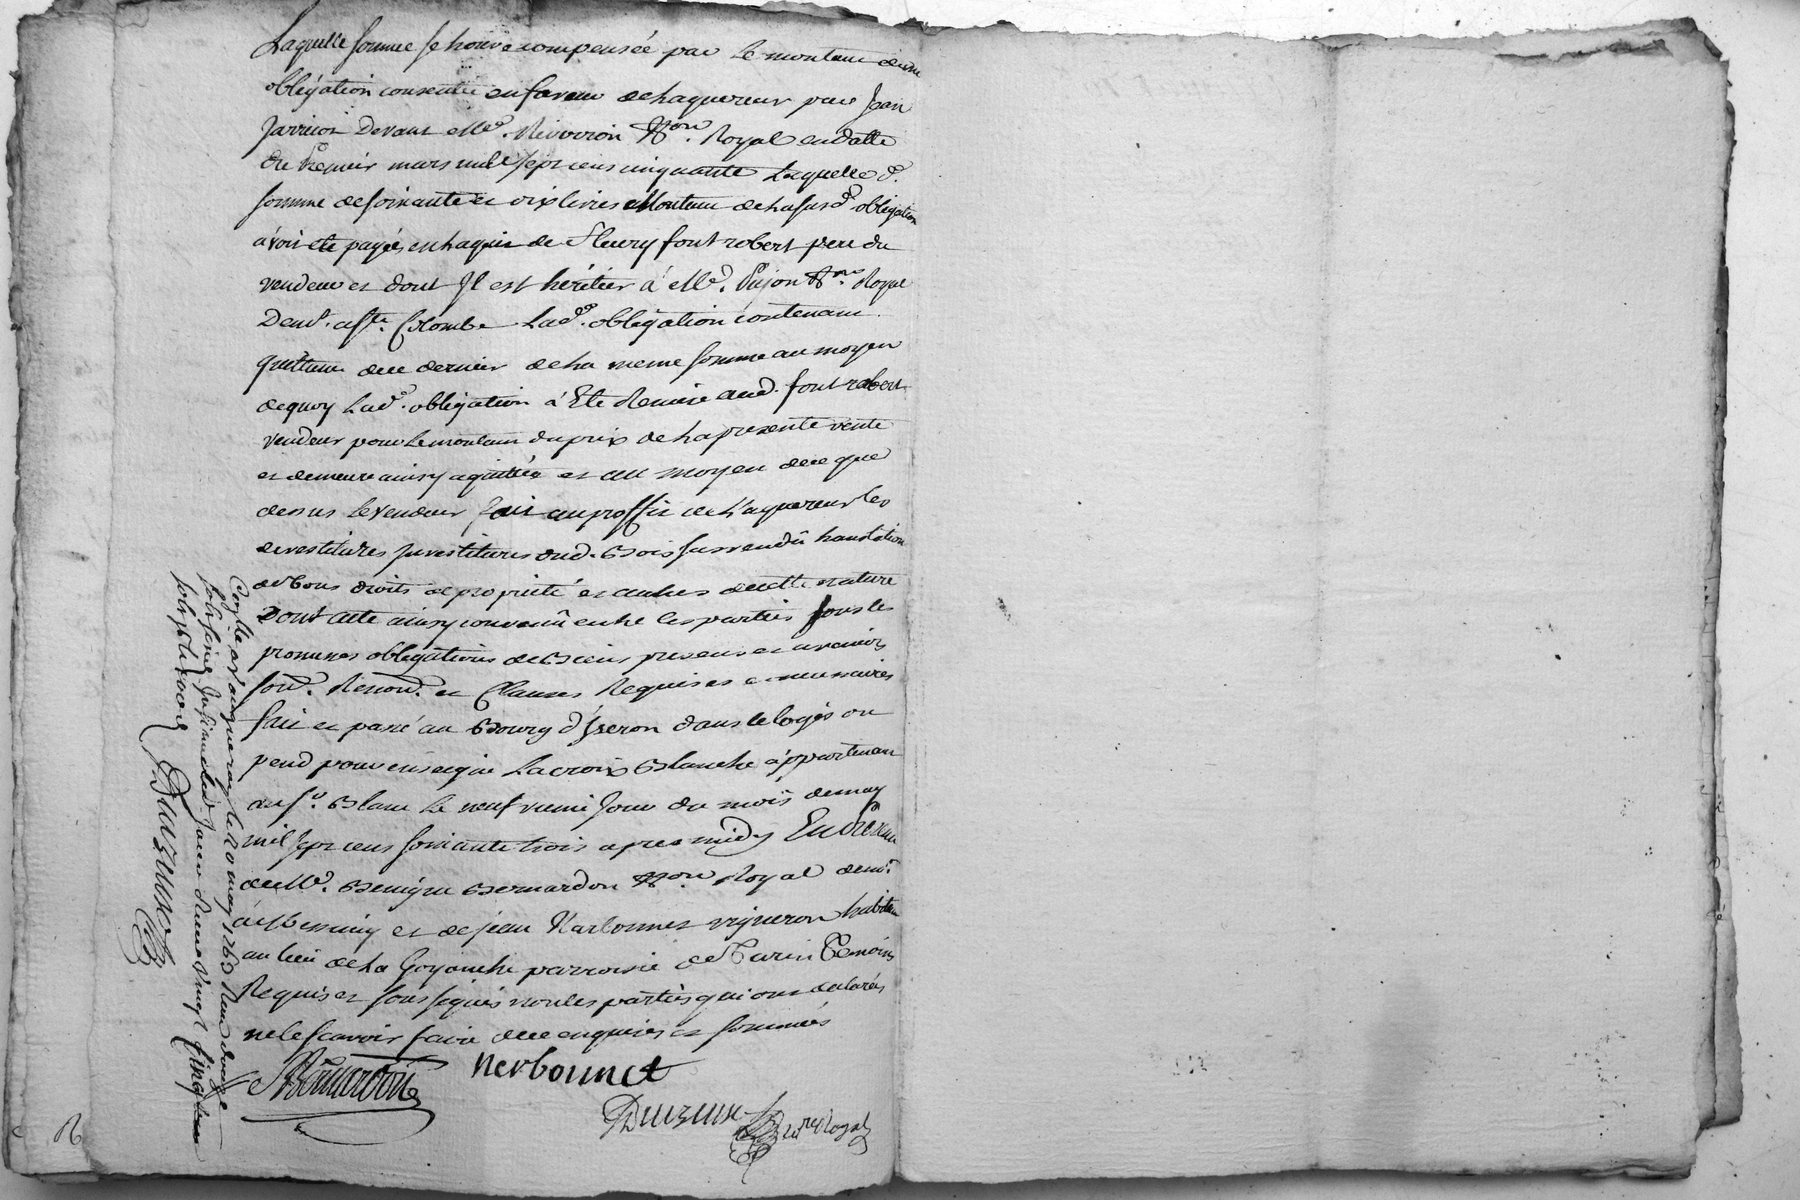 Laquelle somme se trouve compensée par le montant d'une
obligation consentie en faveur de l'aquereur par Jean
Jarricot Devant Me. Néron Royal en datte
du premier mars mille sept cens cinquante Laquelle d.
somme de soixante et dix livres Montant de la susd. obligation
avoir été payée en l'aquit de Fleury fontrobert pere du
vendeur et dont Jl est héritier à Me. Pujon Nre. Royal
Demt. a Ste. Colombe Lad. obligation contenant
quittance de ce dernier de la meme somme au moyen
de quoy Lad. obligation à Eté Remise aud. fontrobert
vendeur pour le montant du prix de la presente vente
et demeure ainsy aquittée et au moyen de ce que
dessus le vendeur fait au proffit de l'aquereur les
devestitures Jnvestitures dud. Bois sus vendû translation
de tous droits de proprieté et autres de cette nature
Dont acte ainsy convenû entre les parties sous les
promesses obligations de Biens presens et avenirs
Renon. et Clauses Requises et necessaires
fait et passé au Bourg d'Jseron dans le logis ou
pend pour enseigne La croix Blanche appartenant
au sr. Blanc le neufvieme Jour du mois de may
mil sept cens soixante trois apres midy En présence
de Me. Benigne Bernardon Royal demt.
à Messimy et de jean Narbonnet vigneron habitant
au lieu de La Goyanche parroisse de Turin Temoins
Requis et soussignés non les parties qui ont declarés
ne le scavoir faire de ce enquises et sommées
Bernardon
Nerbonnet
Nre Royal
Con.lle a Vaugneray le 20 may 1763 Reçu douze
sols six den.